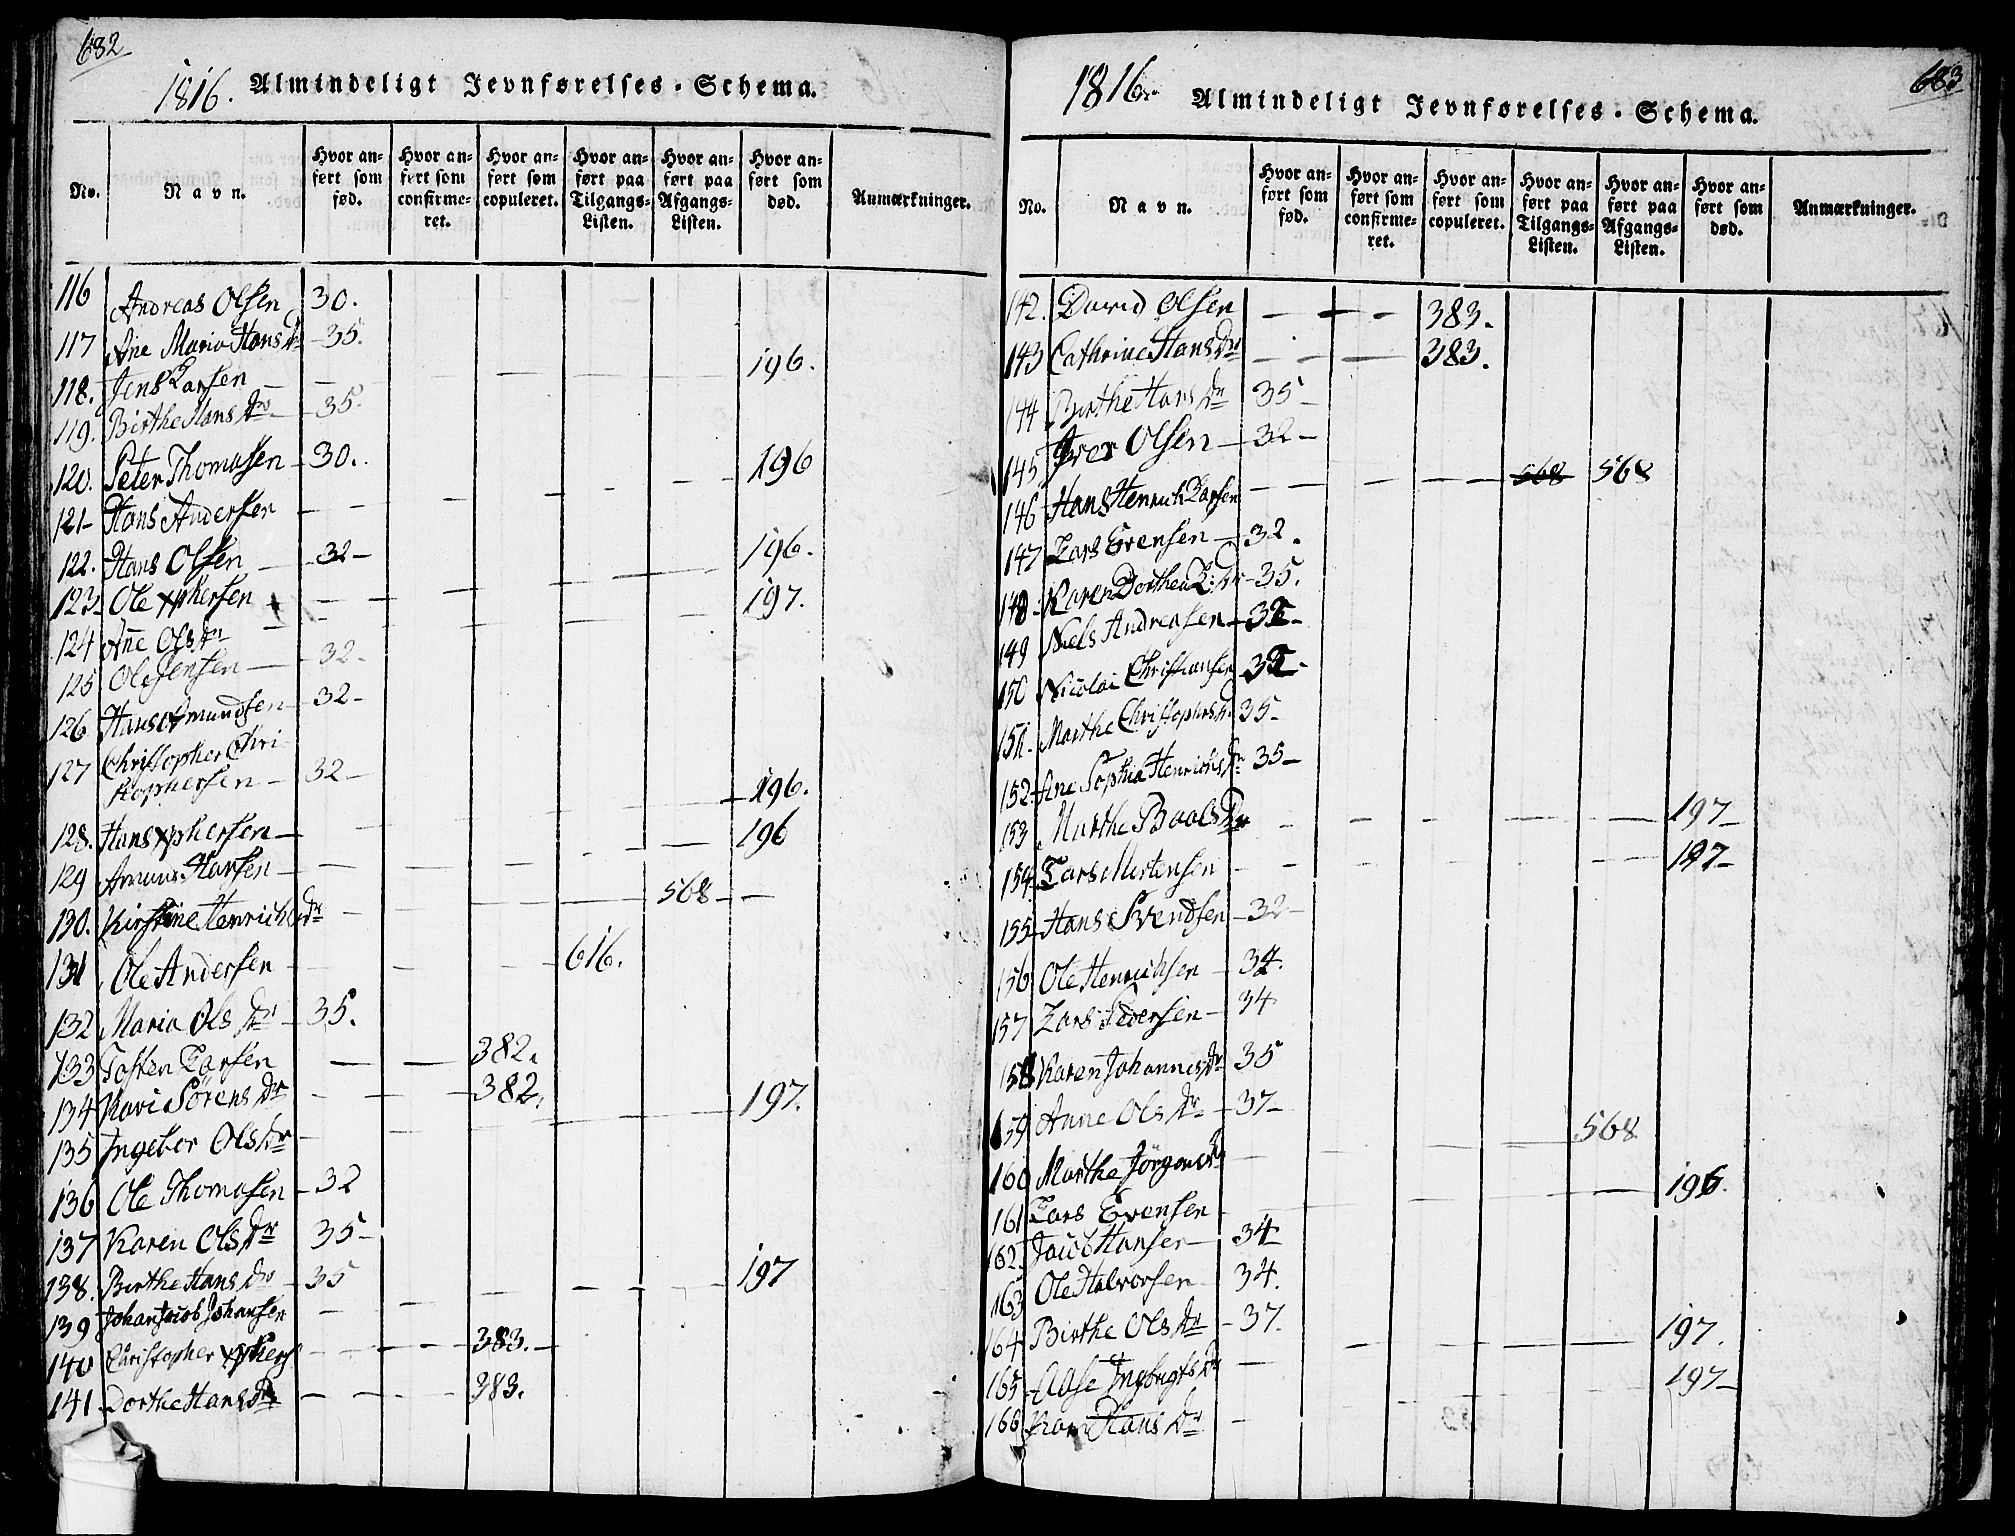 682
1816. Almindeligt Jevnførelses-Schema.
No. Navn. Hvor anført som fød. Hvor anført som confirmeret. Hvor anført som copuleret. Hvor anført paa Tilgangs-Listen. Hvor anført paa Afgangs-Listen. Hvor anført som død. Anmærkninger.
116 Andreas Olsen 30.
117 Ane Maria Hans Dr 35.
118. Jens Larsen 196.
119. Birthe Hans Dr 35.
120. Peter Thomasen 30.
121 Hans Andersen 196
122. Hans Olsen 32
123 Ole Xphersen 196.
124 Ane Ols Dr 197.
125 Ole Jensen 32
126 Hans Amundsen 32
127 Christopher Chri
stophersen 32
128. Hans Xphersen 196.
129 Hansen 196
130. Kirstine Henrichs Dr 568
131 Ole Andersen 616.
132 Maria Ols Dr 35.
133 Tosten Larsen 382.
134 Kari Sörens Dr 382.
135 Ingebor Ols Dr 197.
136 Ole Thomasen 32
137 Karen Ols Dr 35
138. Birthe Hans Dr 35
139 Johan Jacob Johansen 197
140 Christopher Xphers 383.
141. Dorthe Hans Dr 383.
683
1816. Almindeligt Jevnførelses-Schema.
No. Navn. Hvor anført som fød. Hvor anført som confirmeret. Hvor anført som copuleret. Hvor anført paa Tilgangs-Listen. Hvor anført paa Afgangs-Listen. Hvor anført som død. Anmærkninger.
142. David Olsen 383.
143 Cathrine Hans Dr 383.
144 Birthe Hans Dr 35
145 Iver Olsen 32
146 Hans Henrich Larsen 568 568
147 Lars Evensen 32.
148 Karen Dorthea L: Dr 35.
149 Niels Andreasen 32
150 Nicolai Christiansen 32
151. Marthe Christophers Dr 35
152. Ane Sophia Henrichs Dr 35
153 Marthe Boels Dr 197
154. Lars Mortensen 197
155 Hans Svendsen 32
156 Ole Henrichsen 34.
157 Lars Pedersen 34
158 Karen Johannes Dr 35
159 Anne Ols Dr 37
160 Marthe Jörgens Dr 568
161 Lars Evensen 196.
162. Jacob Hansen 34
163 Ole Halvorsen 34.
164 Birthe Ols Dr 37.
165 Aase Dr 197.
166 Hans Dr 197